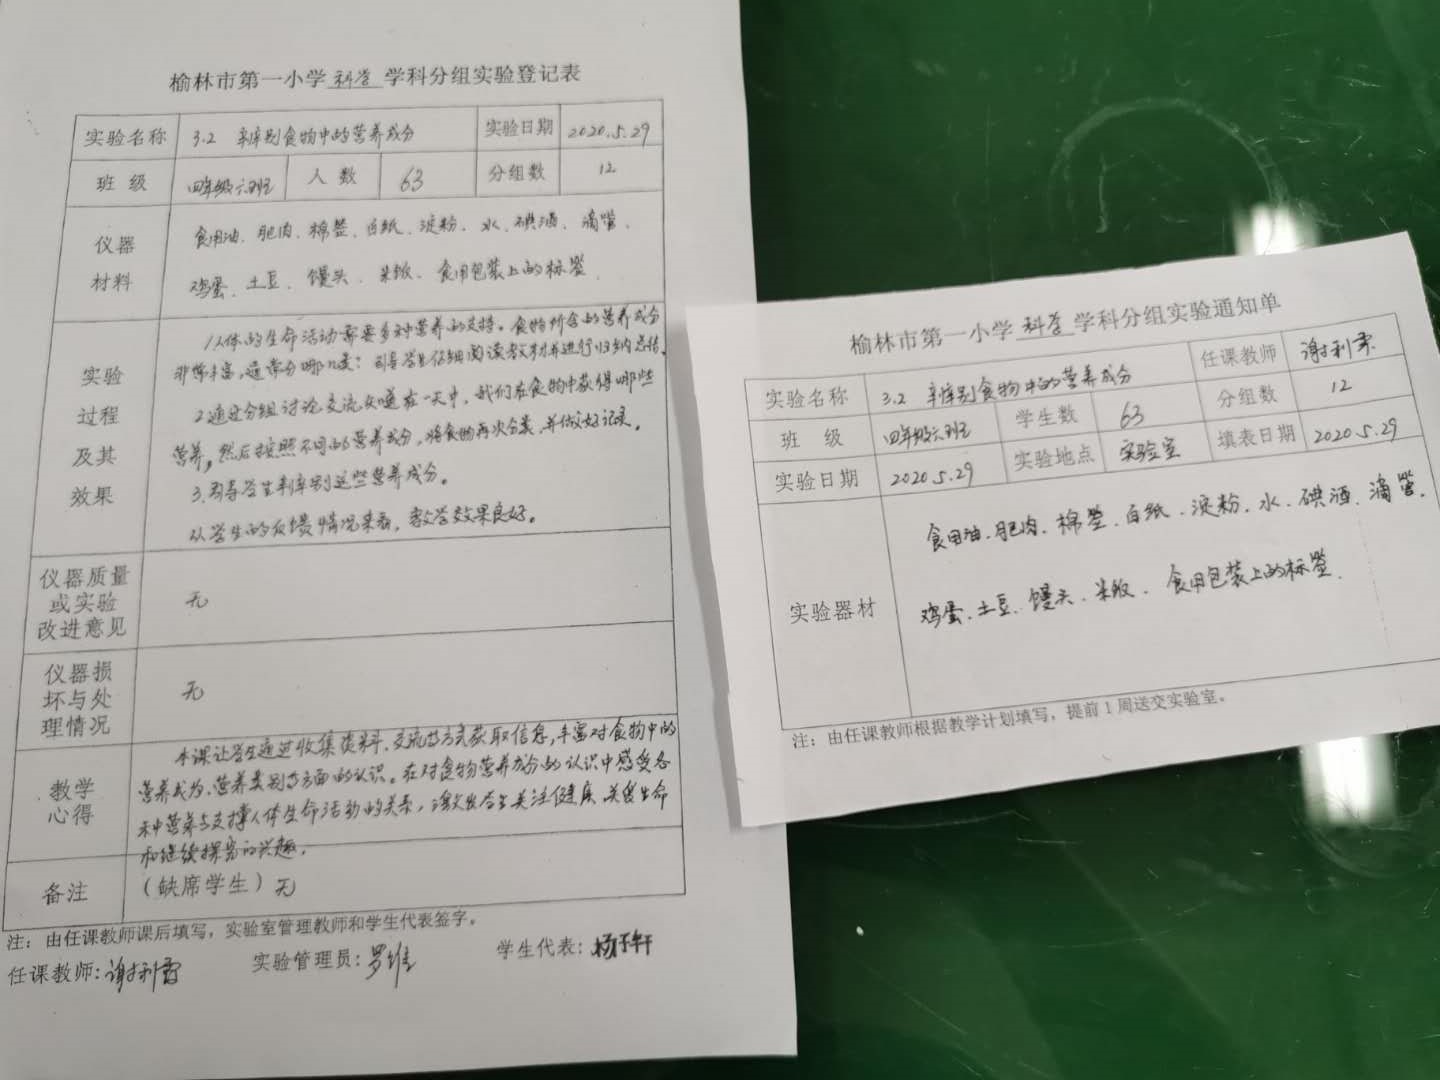 榆林市第一小学 科学 学科分组实验登记表
实验名称 3.2 辨别食物中的营养成分 实验日期 2020.5.29
班 级 四年级六班 人 数 63 分组数 12
仪器材料
食用油、肥肉、棉签、白纸、淀粉、水、碘酒、滴管、
鸡蛋、土豆、馒头、米饭、食用包装上的标签.
实验过程及其效果
1.人体的生命活动需要多种营养的支持。食物所含的营养成分
非常丰富,通常分哪几类?引导学生仔细阅读教材并进行归纳总结。
2.通过分组讨论交流知道在一天中,我们在食物中获得哪些
营养,然后按照不同的营养成分,将食物再次分类,并做好记录。
3.引导学生辨别这些营养成分。
从学生的反馈情况来看,教学效果良好。
仪器质量或实验改进意见 无
仪器损坏与处理情况 无
教学心得
本课让学生通过收集资料、交流等方式获取信息,丰富对食物中的
营养成为、营养类别等方面的认识。在对食物营养成分的认识中感受各
种营养与支撑人体生命活动的关系,激发学生关注健康、关爱生命
和继续探究的兴趣。
备注 (缺席学生)无
注:由任课教师课后填写,实验室管理教师和学生代表签字。
任课教师:谢利 实验管理员:罗维 学生代表:杨轩
榆林市第一小学 科学 学科分组实验通知单
实验名称 3.2 辨别食物中的营养成分 任课教师 谢利
班 级 四年级六班 学生数 63 分组数 12
实验日期 2020.5.29 实验地点 实验室 填表日期 2020.5.29
实验器材
食用油、肥肉、棉签、白纸、淀粉、水、碘酒、滴管、
鸡蛋、土豆、馒头、米饭、食用包装上的标签.
注:由任课教师根据教学计划填写,提前1周送交实验室。